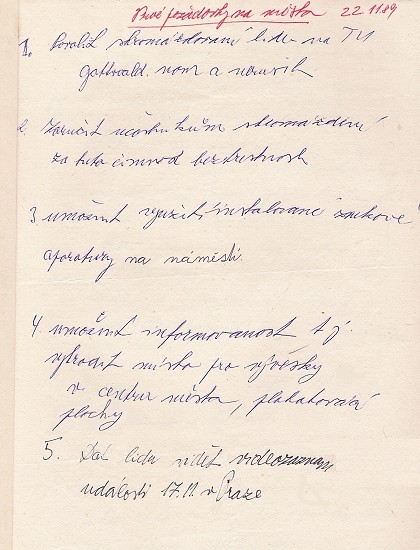 Prvé požadavky na města 22.11.89
1. Povolit shromažďování lidu na TU
Gottwald. nám a nerušit
2. Zaručit účastníkům shromáždění
za tuto činnost beztrestnost
3. umožnit využití instalované zvukové
aparatury na náměstí.
4. umožnit informovanost t.j.
vyhradit místa pro vývěsky
v centru města, plakátovací
plochy
5. Dát lidu vidět videozáznam
události 17.11. v Praze